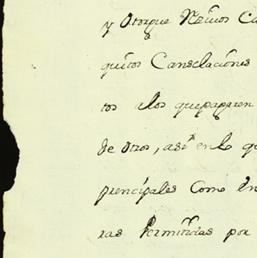 y Otorgue Rẽuos Ca
quitos Canselaciões
tos alos quepagaren
de otros, asi en lo q
principales Como en
ras Permitidas por